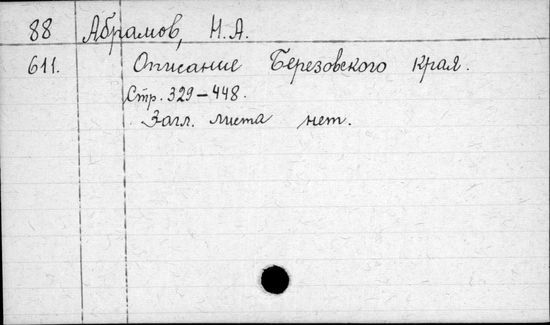 88 Абрамов, Н. А.
611. Описание Березовского края.
Стр. 329-448.
Загл. листа нет.